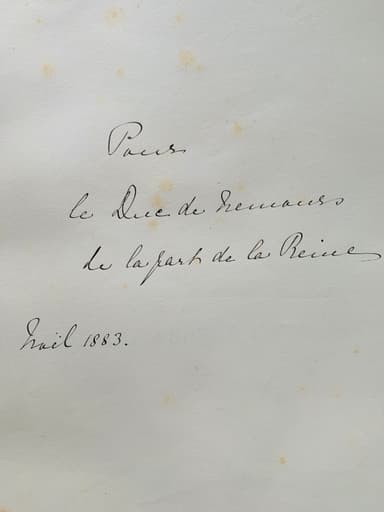 Pour
le Duc de Nemours
de la part de la Reine
Noël 1883.